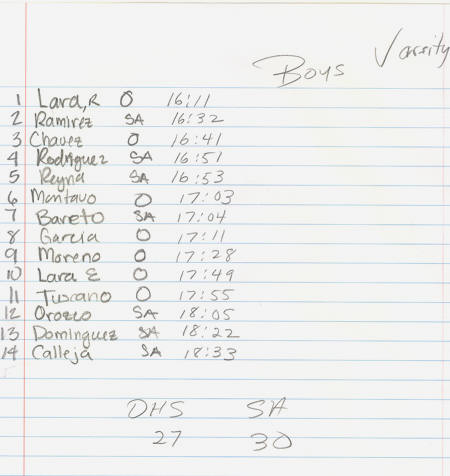 Boys Varsity
1 Lara, R O 16:11
2 Ramirez SA 16:32
3 Chavez O 16:41
4 Rodriguez SA 16:51
5 Reyna SA 16:53
6 Montavo O 17:03
7 Bareto SA 17:04
8 Garcia O 17:11
9 Moreno O 17:28
10 Lara E O 17:49
11 Tuscano O 17:55
12 Orozco SA 18:05
13 Dominguez SA 18:22
14 Calleja SA 18:33
OHS SA
27 30